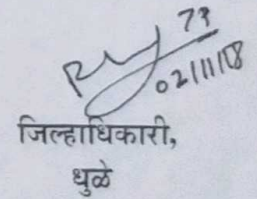 02/11/18
जिल्हाधिकारी,
धुळे